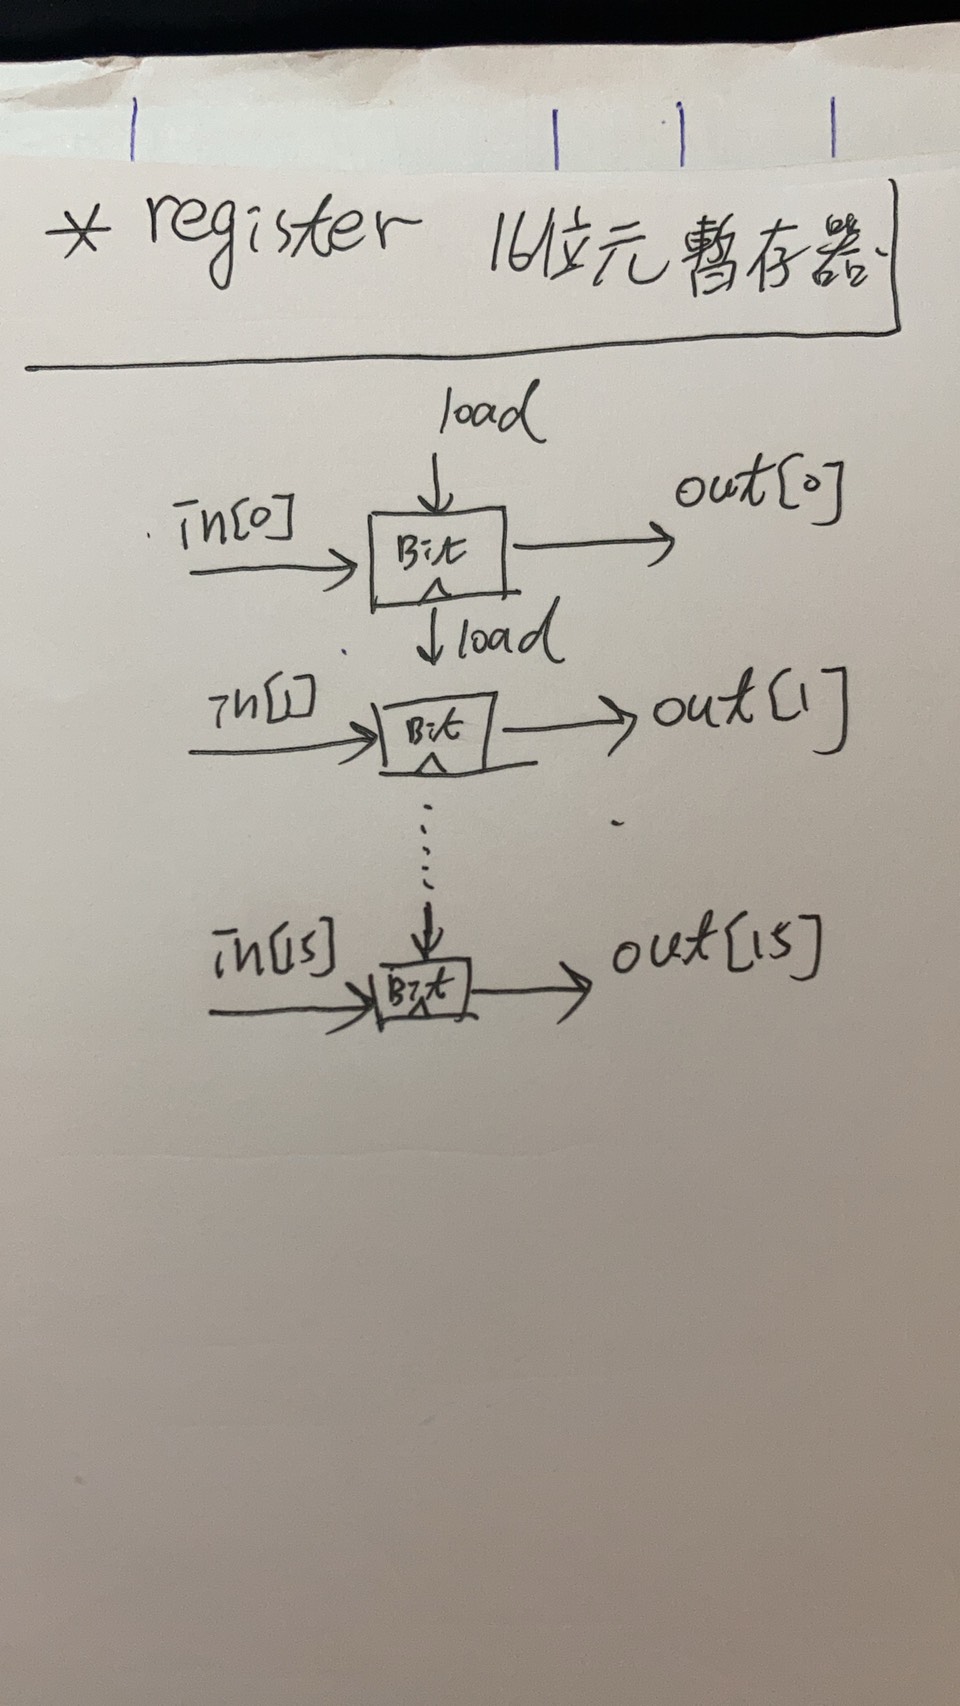 * register 16位元暫存器
load
in[0] Bit out[0]
load
in[1] Bit out[1]
in[15] Bit out[15]